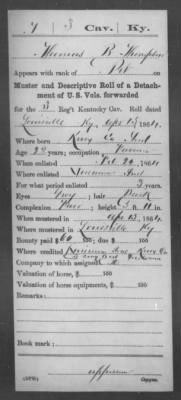 T | 3 | Cav. | Ky.
Thomas B Thompson
Appears with rank of Pvt on
Muster and Descriptive Roll of a Detach-
ment of U. S. Vols. forwarded
for the 3 Reg't Kentucky Cav. Roll dated
Louisville Ky, Apr 13, 1864.
Where born Knox Co Ind
Age 23 years; occupation Farmer
When enlisted Feb 26, 1864.
Where enlisted Vincennes Ind
For what period enlisted 3 years.
Eyes Grey; hair Dark
Complexion; height 5 ft. 11 in.
When mustered in Apr 13, 1864.
Where mustered in Louisville Ky
Bounty paid $60 /100; due $ /100
Where credited Knox Co
Company to which assigned
Valuation of horse, $ /100
Valuation of horse equipments, $ /100
Remarks:
Book mark:
Copyist.